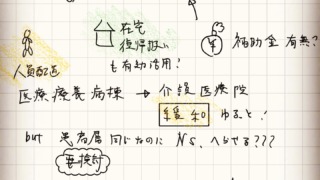 在宅
復帰扱い
も有効活用!
補助金 有無?
人員配置
医療療養病棟 → 介護医療院
緩和 ゆるっと!
but 患者層 同じなのに Ns. へらせる???
要検討